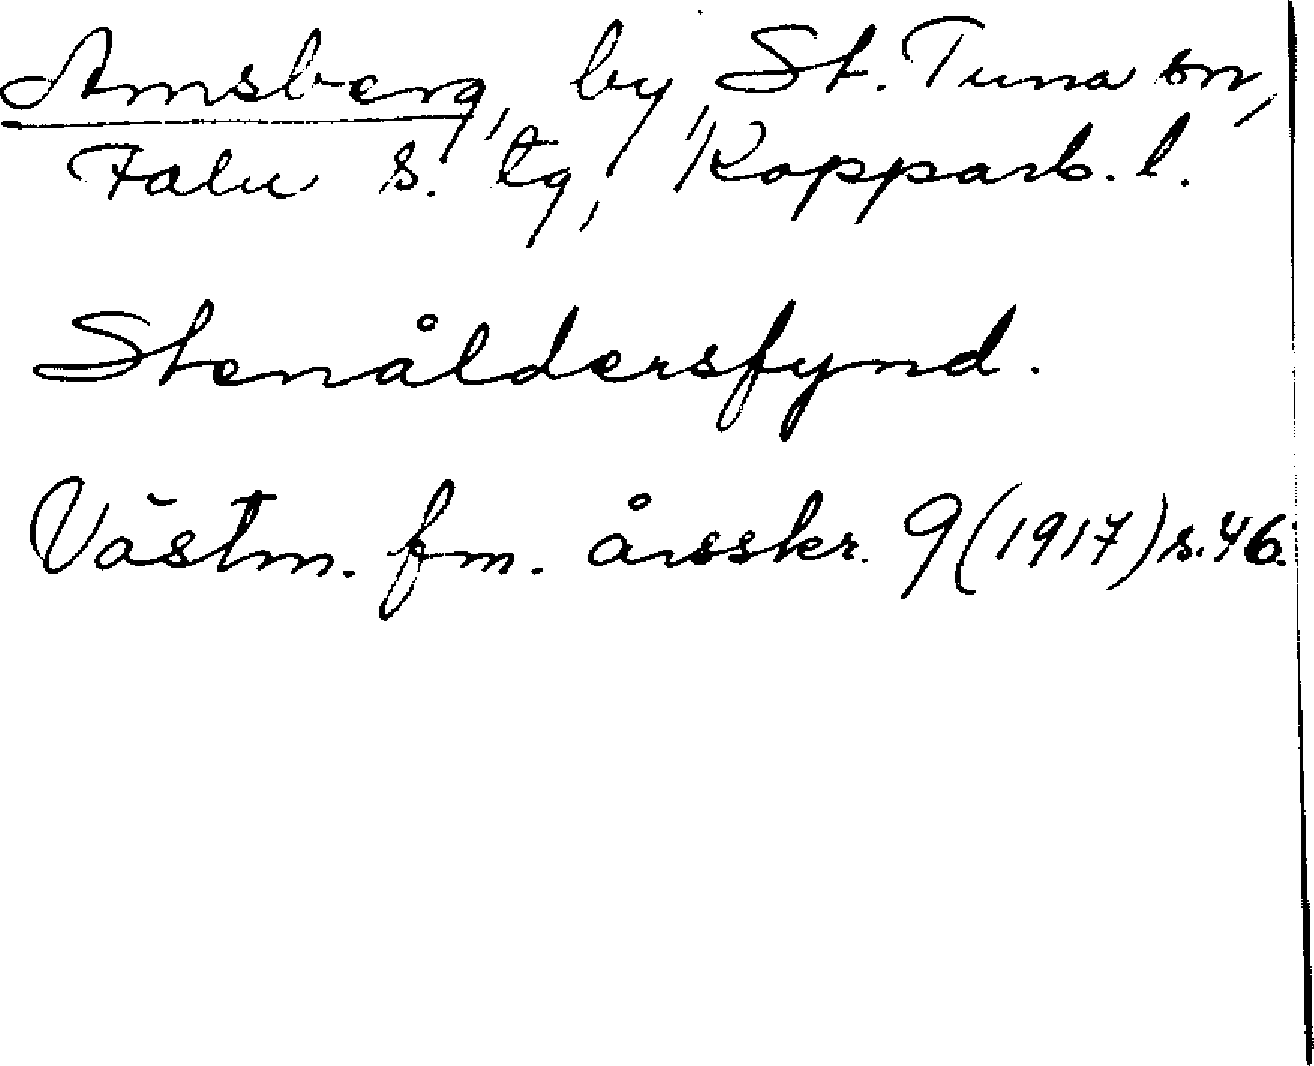 Amsberg, by, St. Tuna sn,
Falu s. tg, Kopparb. l.
Stenåldersfynd.
Västm. fm. årsskr. 9 (1917) s. 46.